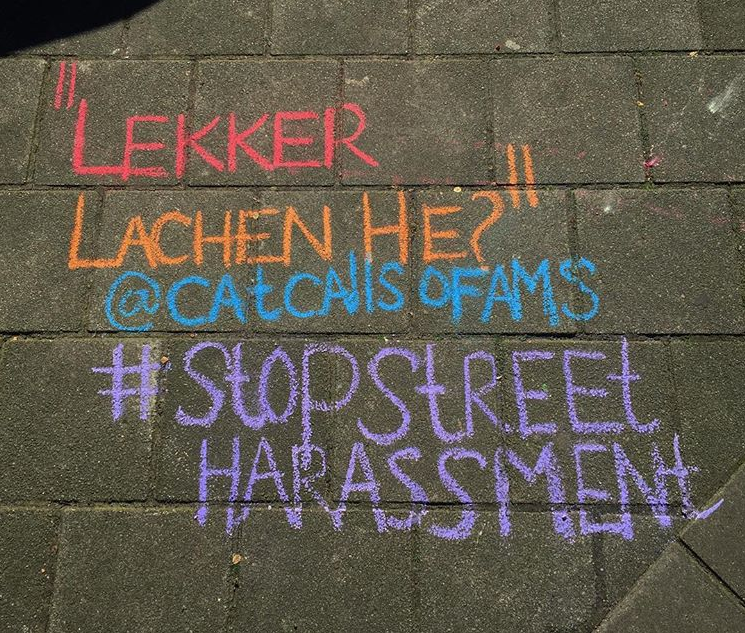 "LEKKER
LACHEN HE?"
@CAtCAllS OFAMS
#StOPStREEt
HARASSMENt